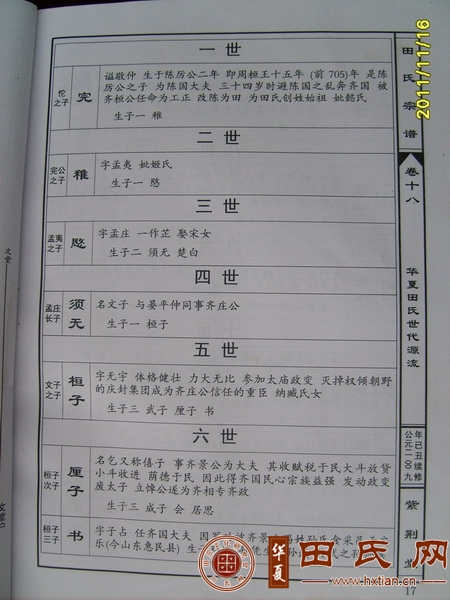 一世
佗之子
完
谥敬仲 生于陈厉公二年 即周桓王十五年(前705)年 是陈
厉公之子 为陈国大夫 三十四岁时避陈国之乱奔齐国 被
齐桓公任命为工正 改陈为田 为田氏创姓始祖 妣懿氏
生子一 稚
二世
完公之子
稚
字孟夷 妣姬氏
生子一 愍
三世
孟夷之子
愍
字孟庄 一作芷 娶宋女
生子二 须无 楚白
四世
孟庄长子
须无
名文子 与晏平仲同事齐庄公
生子一 桓子
五世
文子之子
桓子
字无宇 体格健壮 力大无比 参加太庙政变 灭掉权倾朝野
的庆封集团成为齐庄公信任的重臣 纳臧氏女
生子三 武子 厘子 书
六世
桓子次子
厘子
名乞又称僖子 事齐景公为大夫 其收赋税于民大斗放贷
小斗收进 荫德于民 因此得齐国民心宗族益强 发动政变
废太子 立悼公遂为齐相专齐政
生子三 成子 会 居思
桓子三子
书
字子占 任齐国大夫
乐(今山东惠民县)
田氏宗谱
卷十八
华夏田氏世代源流
公元二00九年己丑续修
紫荆堂
17
2011/11/16
华夏
田氏网
www.hxtian.cn